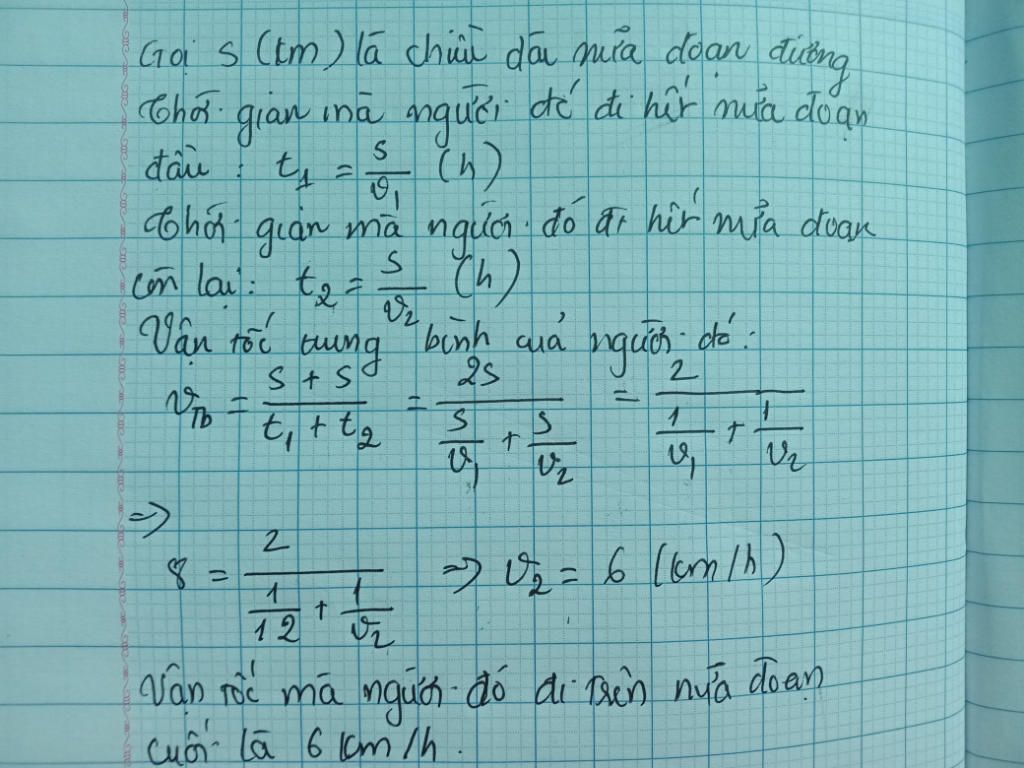 Gọi s (km) là chiều dài nửa đoạn đường
Thời gian mà người đó đi hết nửa đoạn
đầu : t₁ = s/v₁ (h)
Thời gian mà người đó đi hết nửa đoạn
còn lại : t₂ = s/v₂ (h)
Vận tốc trung bình của người đó :
v_Tb = (s + s)/(t₁ + t₂) = 2s/(s/v₁ + s/v₂) = 2/(1/v₁ + 1/v₂)
=>
8 = 2/(1/12 + 1/v₂) => v₂ = 6 (km/h)
Vận tốc mà người đó đi trên nửa đoạn
cuối là 6 km/h .